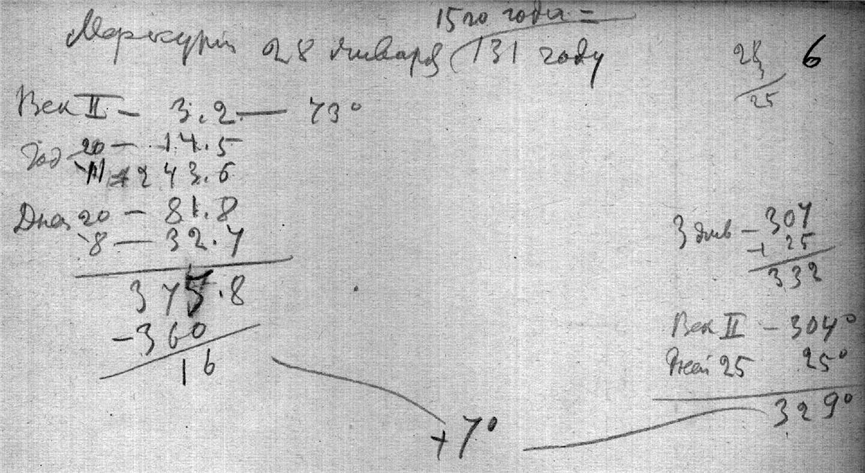 1520 года =
Меркурій 28 января (131 году
28 6
3
25
Век II — 3.2 — 73°
Год 20 — 14.5
11 243.6
Дней 20 — 81.8
8 — 32.7
375.8
-360
16
3 янв — 307
+ 25
332
Век II — 304°
Дней 25 25°
329°
+7°